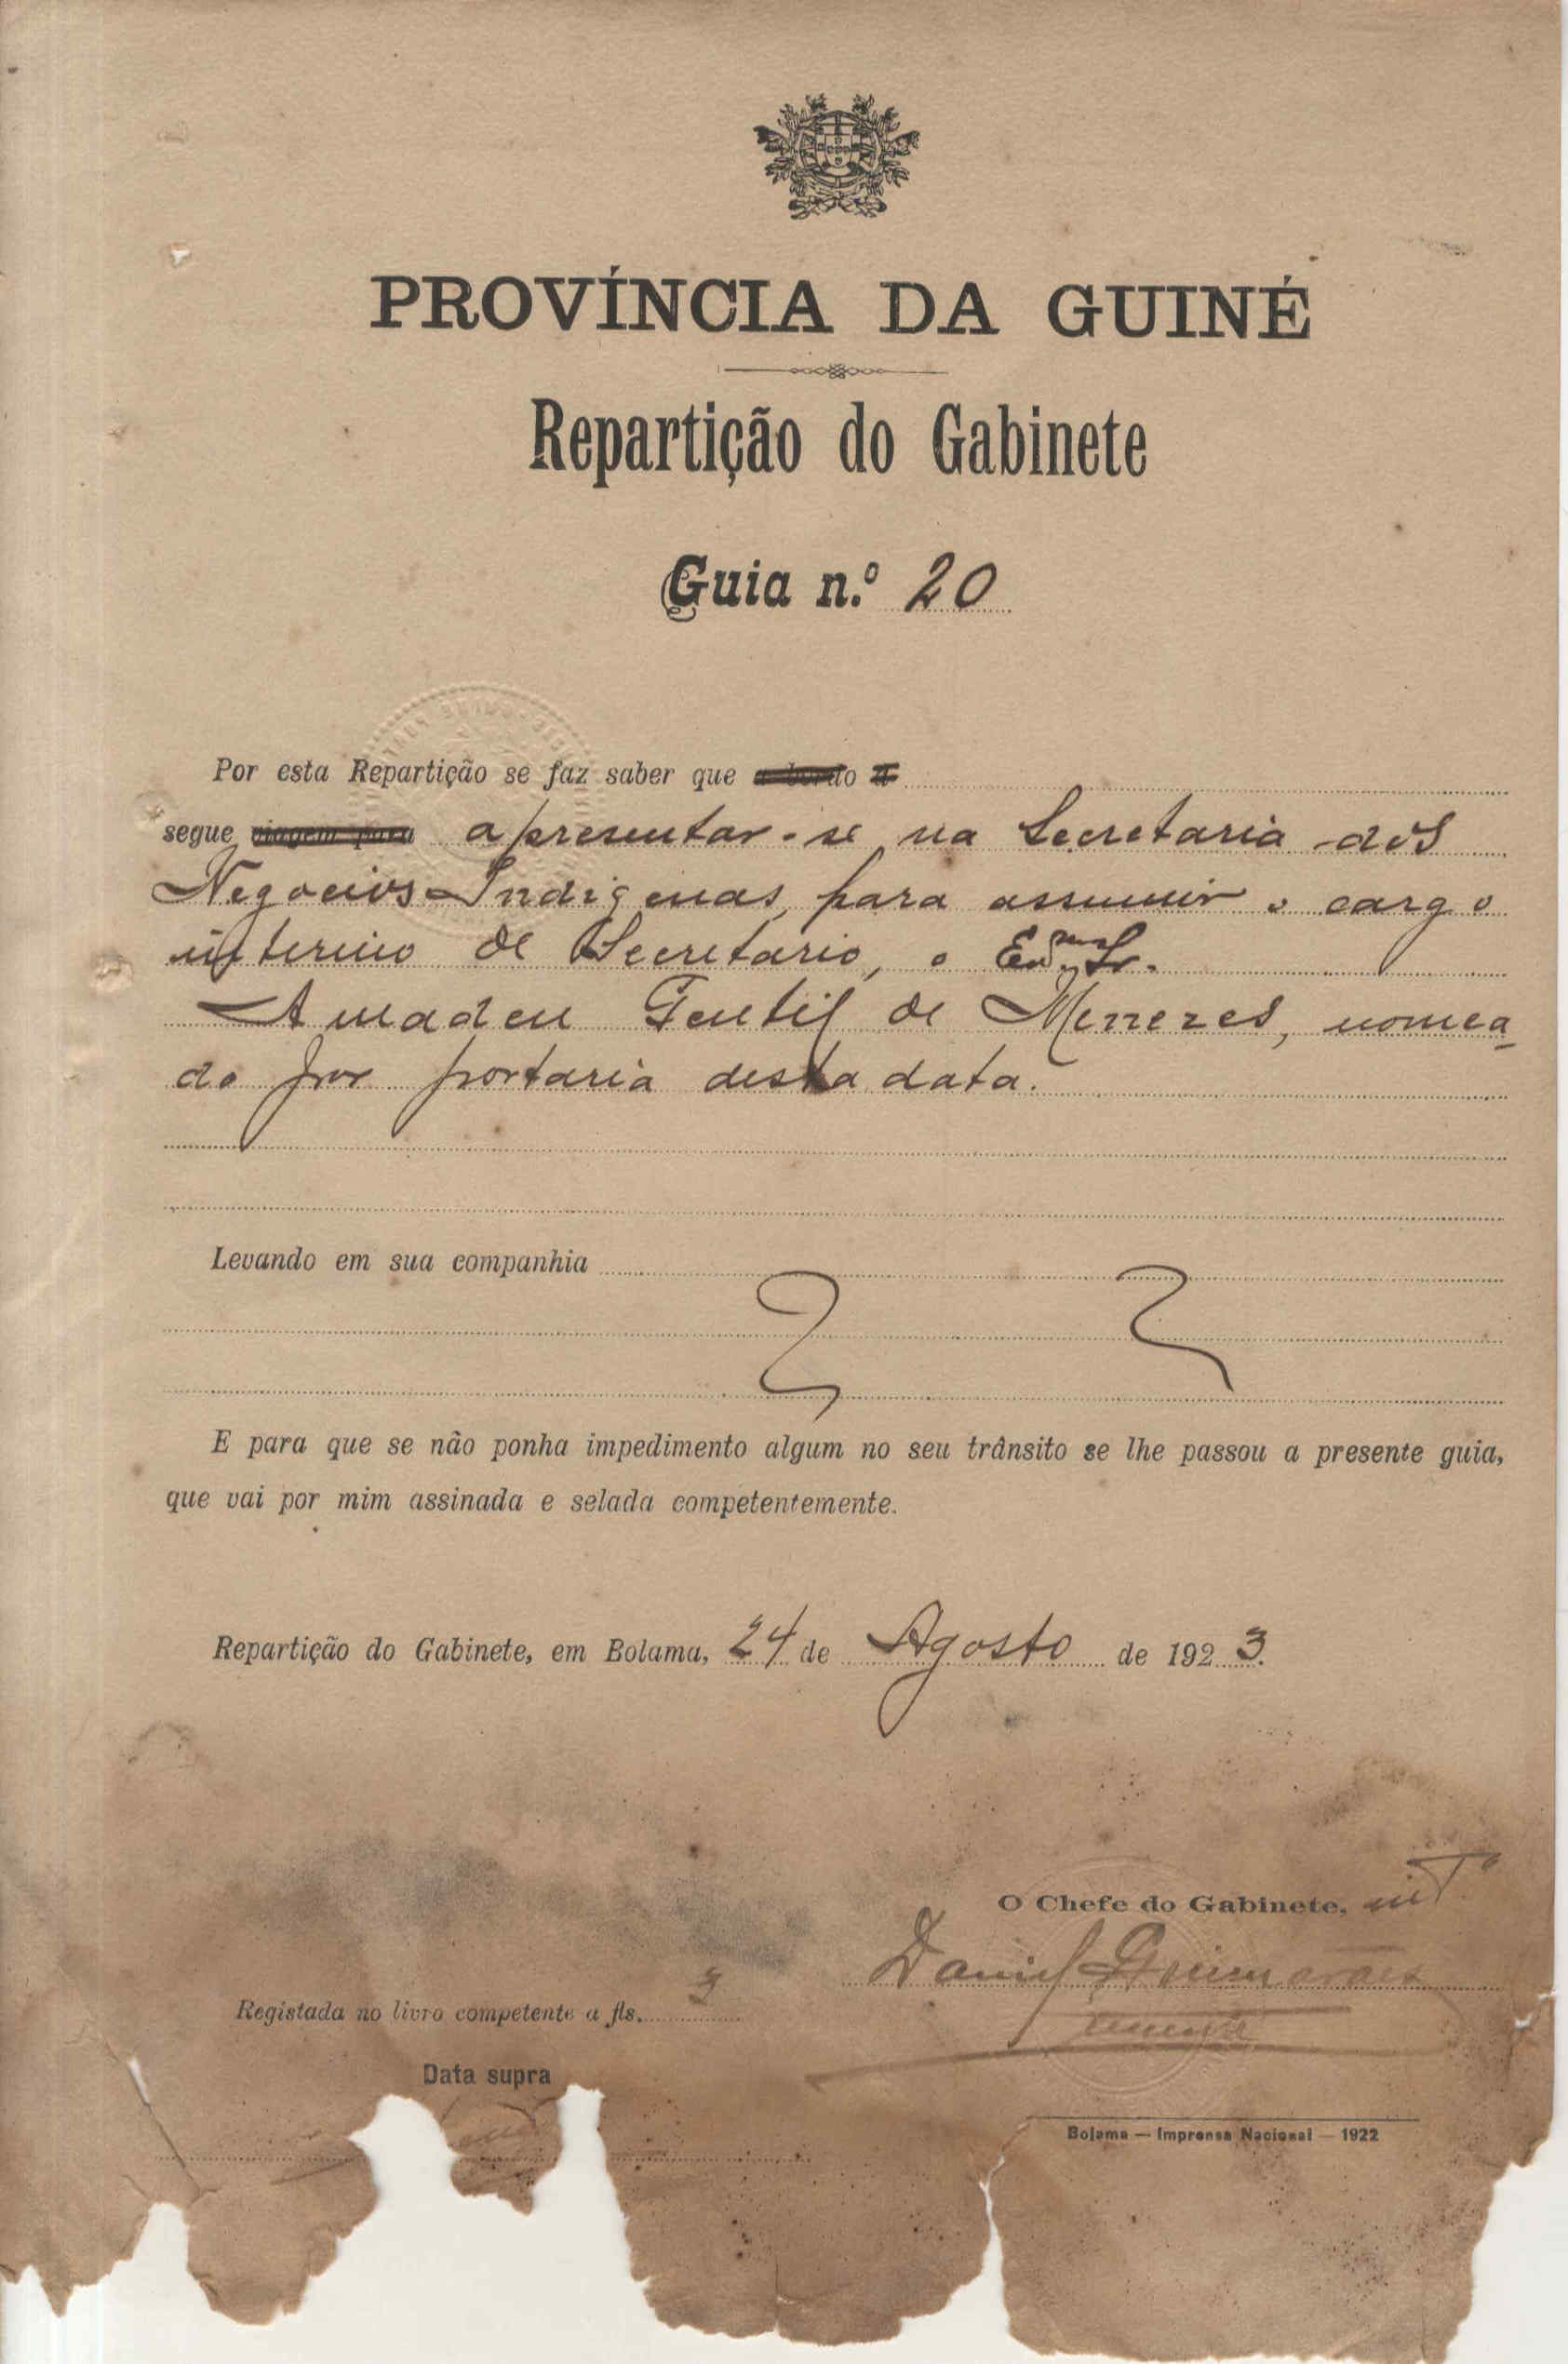 PROVÍNCIA DA GUINÉ
Repartição do Gabinete
Guia n.º 20
Por esta Repartição se faz saber que a bordo
segue viagem para apresentar-se na Secretaria dos
Negocios Indigenas, para assumir o cargo
interino de Secretario, o Exmo Sr.
Amadeu Gentil de Menezes, nomea-
do por portaria desta data.
Levando em sua companhia
E para que se não ponha impedimento algum no seu trânsito se lhe passou a presente guia,
que vai por mim assinada e selada competentemente.
Repartição do Gabinete, em Bolama, 24 de Agosto de 1923.
O Chefe do Gabinete, intº
Daniel Guimarães
tenente
Registada no livro competente a fls. 3
Data supra
Bolama — Imprensa Nacional — 1922